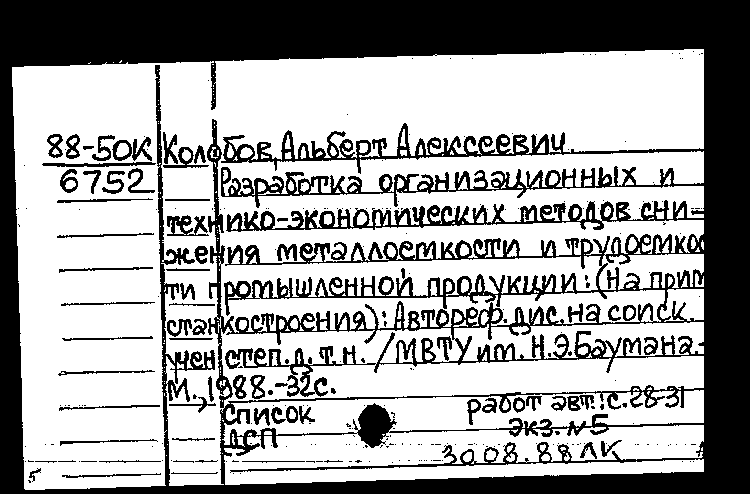 88-50К Колобов, Альберт Алексеевич.
6752 Разработка организационных и
технико-экономических методов сни-
жения металлоемкости и трудоемкос
ти промышленной продукции: (На прим
станкостроения): Автореф. дис. на соиск.
учен степ. д. т. н. / МВТУ им. Н.Э. Баумана.-
М., 1988.-32с.
Список работ авт.: с. 28-31
ДСП экз. №5
30 08. 88 ЛК
5